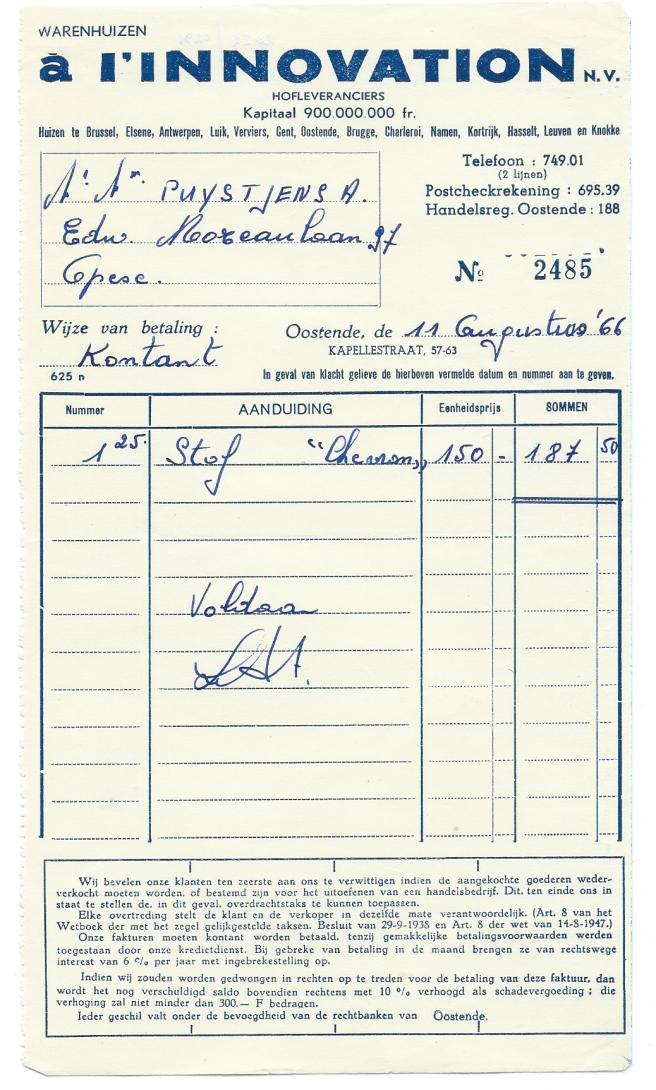 WARENHUIZEN
à l'INNOVATION N.V.
HOFLEVERANCIERS
Kapitaal 900.000.000 fr.
Huizen te Brussel, Elsene, Antwerpen, Luik, Verviers, Gent, Oostende, Brugge, Charleroi, Namen, Kortrijk, Hasselt, Leuven en Knokke
Telefoon : 749.01
(2 lijnen)
Postcheckrekening : 695.39
Handelsreg. Oostende : 188
PUYSTJENS A.
Edw. Moreaulaan 97
No 2485
Wijze van betaling :
Kontant
Oostende, de 11 Augustus '66
KAPELLESTRAAT, 57-63
625 n
In geval van klacht gelieve de hierboven vermelde datum en nummer aan te geven.
Nummer AANDUIDING Eenheidsprijs SOMMEN
1 25. Stof "Chevron" 150 - 187 50
Voldaan
Wij bevelen onze klanten ten zeerste aan ons te verwittigen indien de aangekochte goederen weder-
verkocht moeten worden, of bestemd zijn voor het uitoefenen van een handelsbedrijf. Dit, ten einde ons in
staat te stellen de, in dit geval, overdrachtstaks te kunnen toepassen.
Elke overtreding stelt de klant en de verkoper in dezelfde mate verantwoordelijk. (Art. 8 van het
Wetboek der met het zegel gelijkgestelde taksen. Besluit van 29-9-1938 en Art. 8 der wet van 14-8-1947.)
Onze fakturen moeten kontant worden betaald, tenzij gemakkelijke betalingsvoorwaarden werden
toegestaan door onze kredietdienst. Bij gebreke van betaling in de maand brengen ze van rechtswege
interest van 6 % per jaar met ingebrekestelling op.
Indien wij zouden worden gedwongen in rechten op te treden voor de betaling van deze faktuur, dan
wordt het nog verschuldigd saldo bovendien rechtens met 10 % verhoogd als schadevergoeding ; die
verhoging zal niet minder dan 300.— F bedragen.
Ieder geschil valt onder de bevoegdheid van de rechtbanken van Oostende.